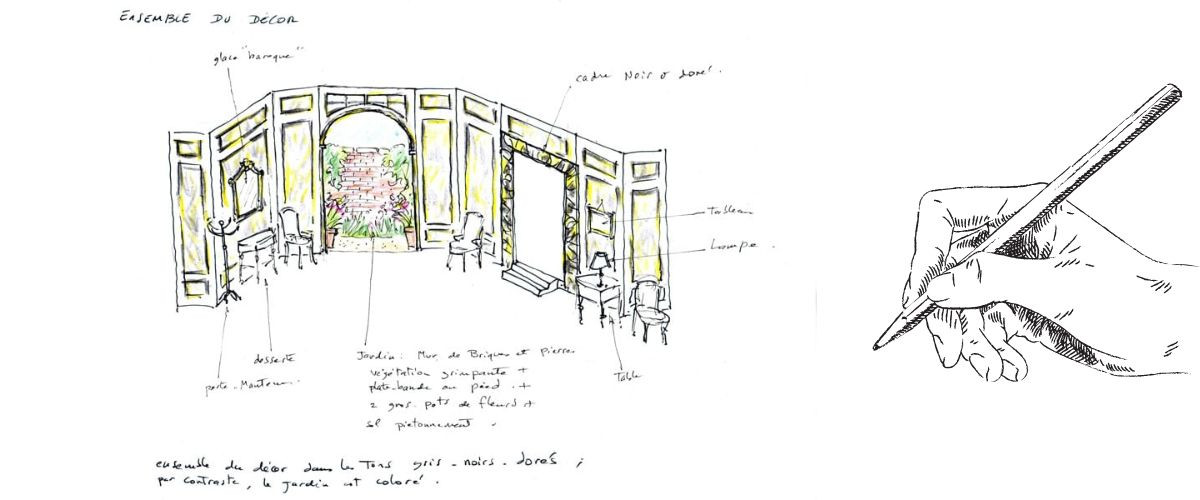 ENSEMBLE DU DÉCOR
glace "baroque"
cadre Noir & doré.
Tableau
Lampe.
desserte
porte-Manteau
Jardin: Mur de Briques et pierres
végétation grimpante +
plate-bande au pied +
2 gros pots de fleurs +
sol pietonnement
Table
ensemble du décor dans les Tons gris - noirs - dorés ;
par contraste, le jardin est coloré.